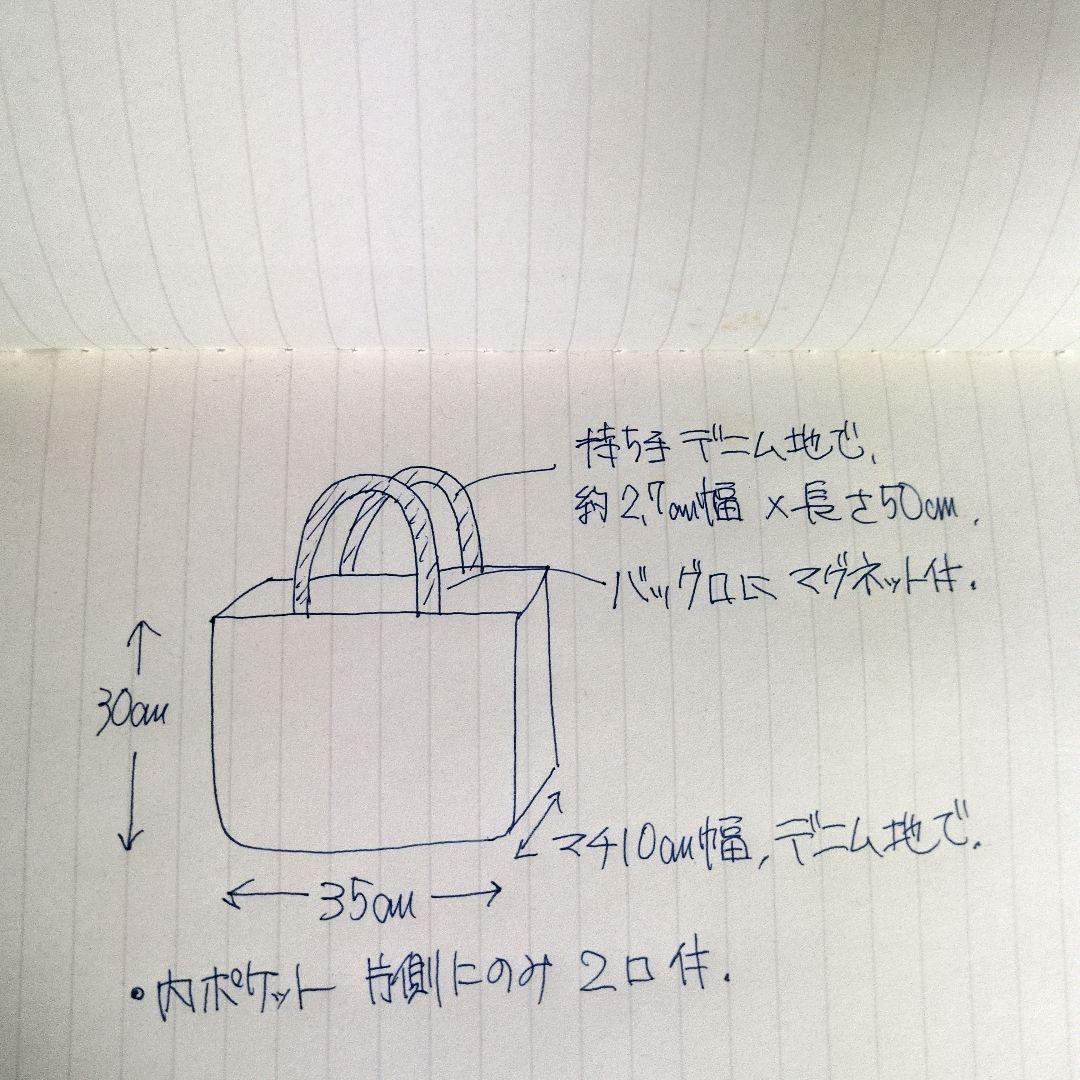 持ち手 デニム地で、
約2.7cm幅 × 長さ50cm.
バッグ口に マグネット付.
30cm
マチ10cm幅、デニム地で.
35cm
• 内ポケット 片側にのみ 2口付.